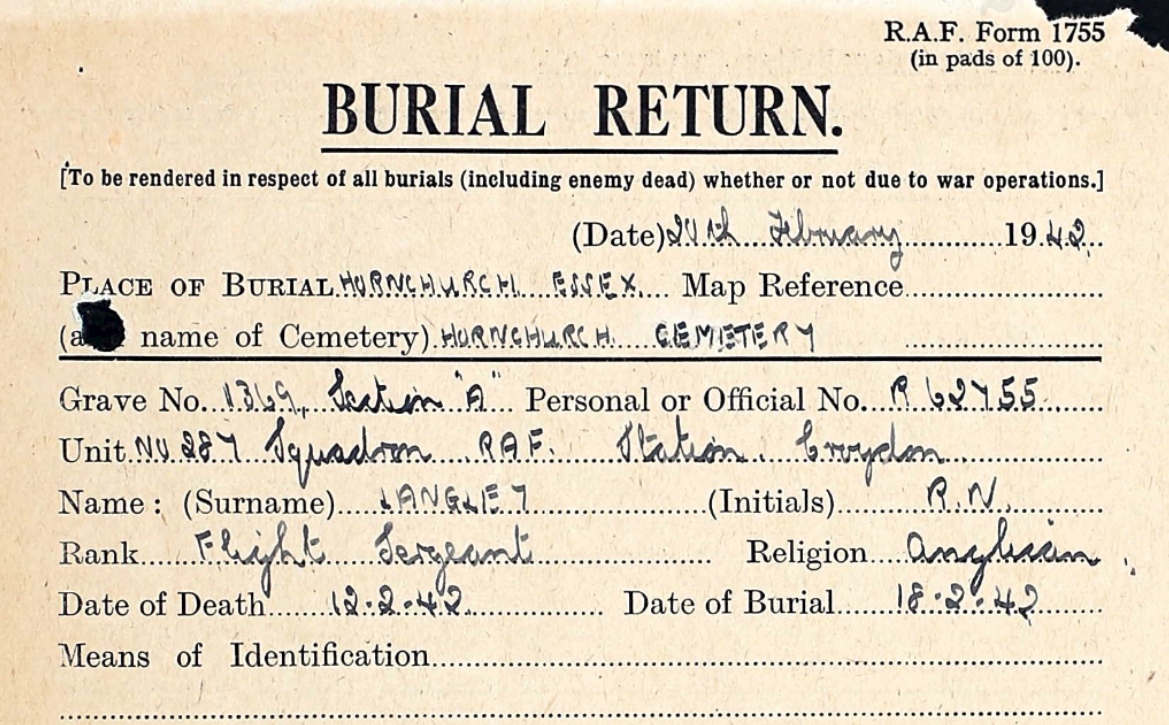 R.A.F. Form 1755
(in pads of 100).
BURIAL RETURN.
[To be rendered in respect of all burials (including enemy dead) whether or not due to war operations.]
(Date) 20th February 1942
PLACE OF BURIAL HORNCHURCH ESSEX Map Reference
name of Cemetery) HORNCHURCH CEMETERY
Grave No. 1369, Section "A" Personal or Official No. R 62755
Unit NO 287 Squadron RAF. Station. Croydon
Name: (Surname) LANGLEY (Initials) R.N.
Rank Flight Sergeant Religion Anglican
Date of Death 12-2-42 Date of Burial 18-2-42
Means of Identification